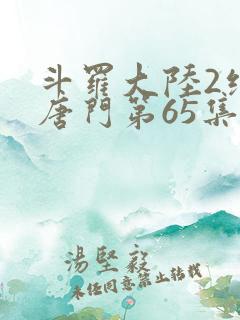 斗羅大陸2
唐門第65集
湯堅毅
未经同意禁止转载